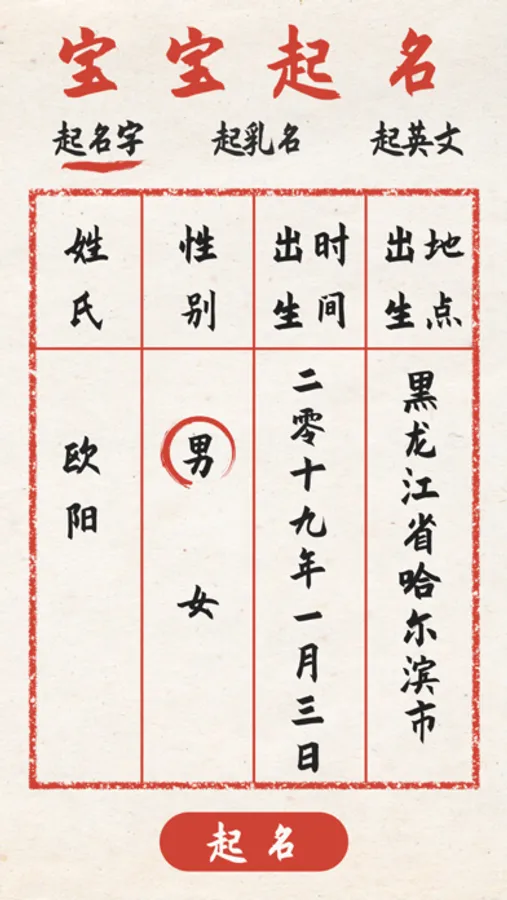 宝宝起名
起名字 起乳名 起英文
姓氏 性别 出生时间 出生地点
欧阳
男
女
二零十九年一月三日
黑龙江省哈尔滨市
起名